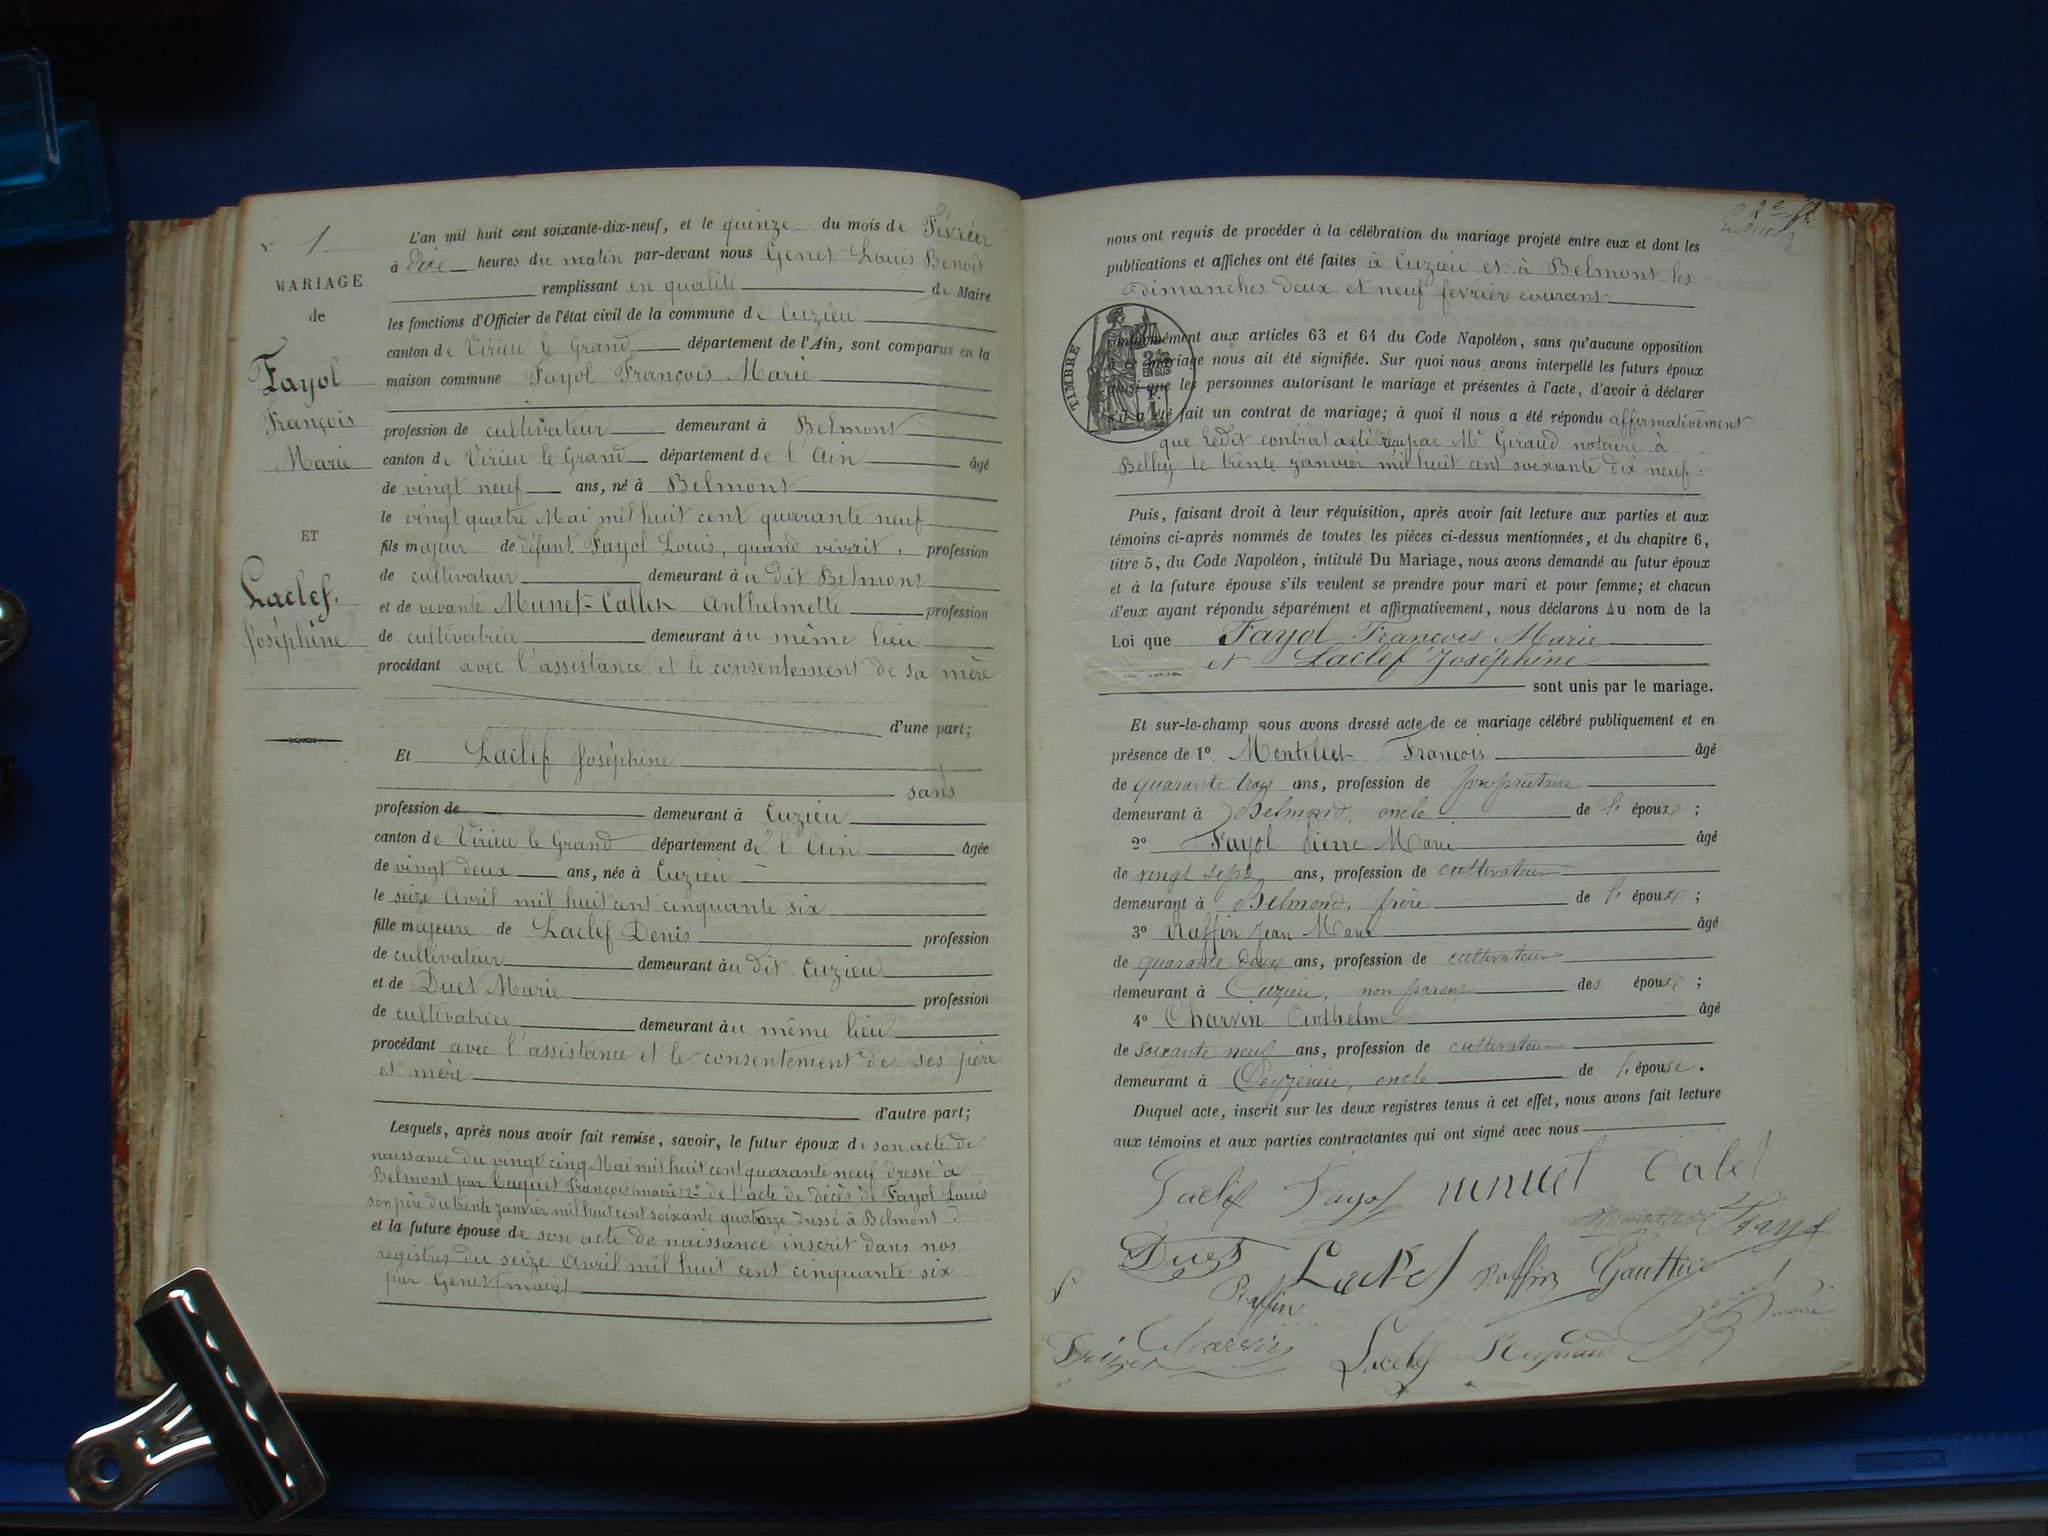 N° 1
MARIAGE
de
Fayol
François
Marie
ET
Laclef.
Joséphine
L'an mil huit cent soixante-dix-neuf, et le quinze du mois de Février
à dix heures du matin par-devant nous Genet Louis Benoit
remplissant en qualité de Maire
les fonctions d'Officier de l'état civil de la commune de Cuzieu
canton de Virieu le Grand département de l'Ain, sont comparus en la
maison commune Fayol François Marie
profession de cultivateur demeurant à Belmont
canton de Virieu le Grand département de l'Ain âgé
de vingt neuf ans, né à Belmont
le vingt quatre Mai mil huit cent quarante neuf
fils majeur de défunt Fayol Louis, quand vivait, profession
de cultivateur demeurant au dit Belmont
et de vivante Munet-Callet Anthelmette profession
de cultivatrice demeurant au même lieu
procédant avec l'assistance et le consentement de sa mère
d'une part;
Et Laclef Joséphine
sans
profession de demeurant à Cuzieu
canton de Virieu le Grand département de l'Ain âgée
de vingt deux ans, née à Cuzieu
le seize Avril mil huit cent cinquante six
fille majeure de Laclef Denis profession
de cultivateur demeurant au dit Cuzieu
et de Duet Marie profession
de cultivatrice demeurant au même lieu
procédant avec l'assistance et le consentement de ses père
et mère
d'autre part;
Lesquels, après nous avoir fait remise, savoir, le futur époux de son acte de
naissance du vingt cinq Mai mil huit cent quarante neuf dressé à
Belmont par Cuquet François maire 2° de l'acte de décès de Fayol Louis
son père du trente janvier mil huit cent soixante quatorze dressé à Belmont
et la future épouse de son acte de naissance inscrit dans nos
registres du seize Avril mil huit cent cinquante six
par Genet (maire)
2e
nous ont requis de procéder à la célébration du mariage projeté entre eux et dont les
publications et affiches ont été faites à Cuzieu et à Belmont les
dimanches deux et neuf février courant
TIMBRE
conformément aux articles 63 et 64 du Code Napoléon, sans qu'aucune opposition
à ce mariage nous ait été signifiée. Sur quoi nous avons interpellé les futurs époux
ainsi que les personnes autorisant le mariage et présentes à l'acte, d'avoir à déclarer
s'il a été fait un contrat de mariage; à quoi il nous a été répondu affirmativement
que ledit contrat a été reçu par Me Giraud notaire à
Belley le trente janvier mil huit cent soixante dix neuf.
Puis, faisant droit à leur réquisition, après avoir fait lecture aux parties et aux
témoins ci-après nommés de toutes les pièces ci-dessus mentionnées, et du chapitre 6,
titre 5, du Code Napoléon, intitulé Du Mariage, nous avons demandé au futur époux
et à la future épouse s'ils veulent se prendre pour mari et pour femme; et chacun
d'eux ayant répondu séparément et affirmativement, nous déclarons Au nom de la
Loi que Fayol François Marie
et Laclef Joséphine
sont unis par le mariage.
Et sur-le-champ nous avons dressé acte de ce mariage célébré publiquement et en
présence de 1° Montillet François âgé
de quarante trois ans, profession de propriétaire
demeurant à Belmond, oncle de l'époux ;
2° Fayol Pierre Marie âgé
de vingt sept ans, profession de cultivateur
demeurant à Belmond, frère de l'époux ;
3° Ruffin Jean Marie âgé
de quarante deux ans, profession de cultivateur
demeurant à Cuzieu, non parent des époux ;
4° Charvin Anthelme âgé
de soixante neuf ans, profession de cultivateur
demeurant à Ceyzérieu, oncle de l'épouse.
Duquel acte, inscrit sur les deux registres tenus à cet effet, nous avons fait lecture
aux témoins et aux parties contractantes qui ont signé avec nous
Laclef Fayol munet Calet
Montillet Fayol
Duet Laclef Ruffin Gauthier
Ruffin
Charvin Laclef Reynaud maire